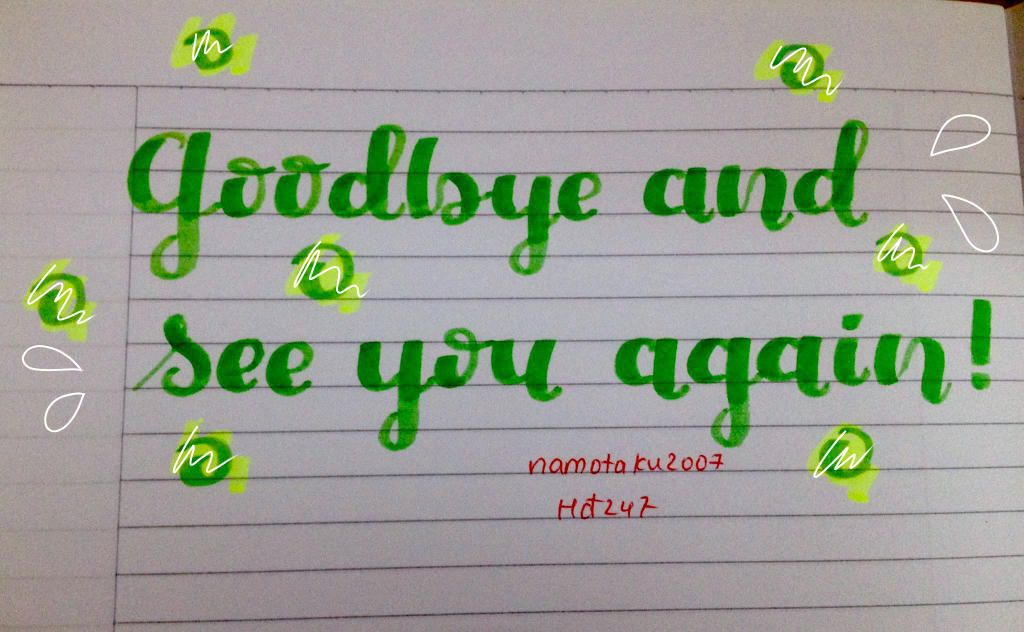 Goodbye and
see you again!
namotaku2007
Hdt247